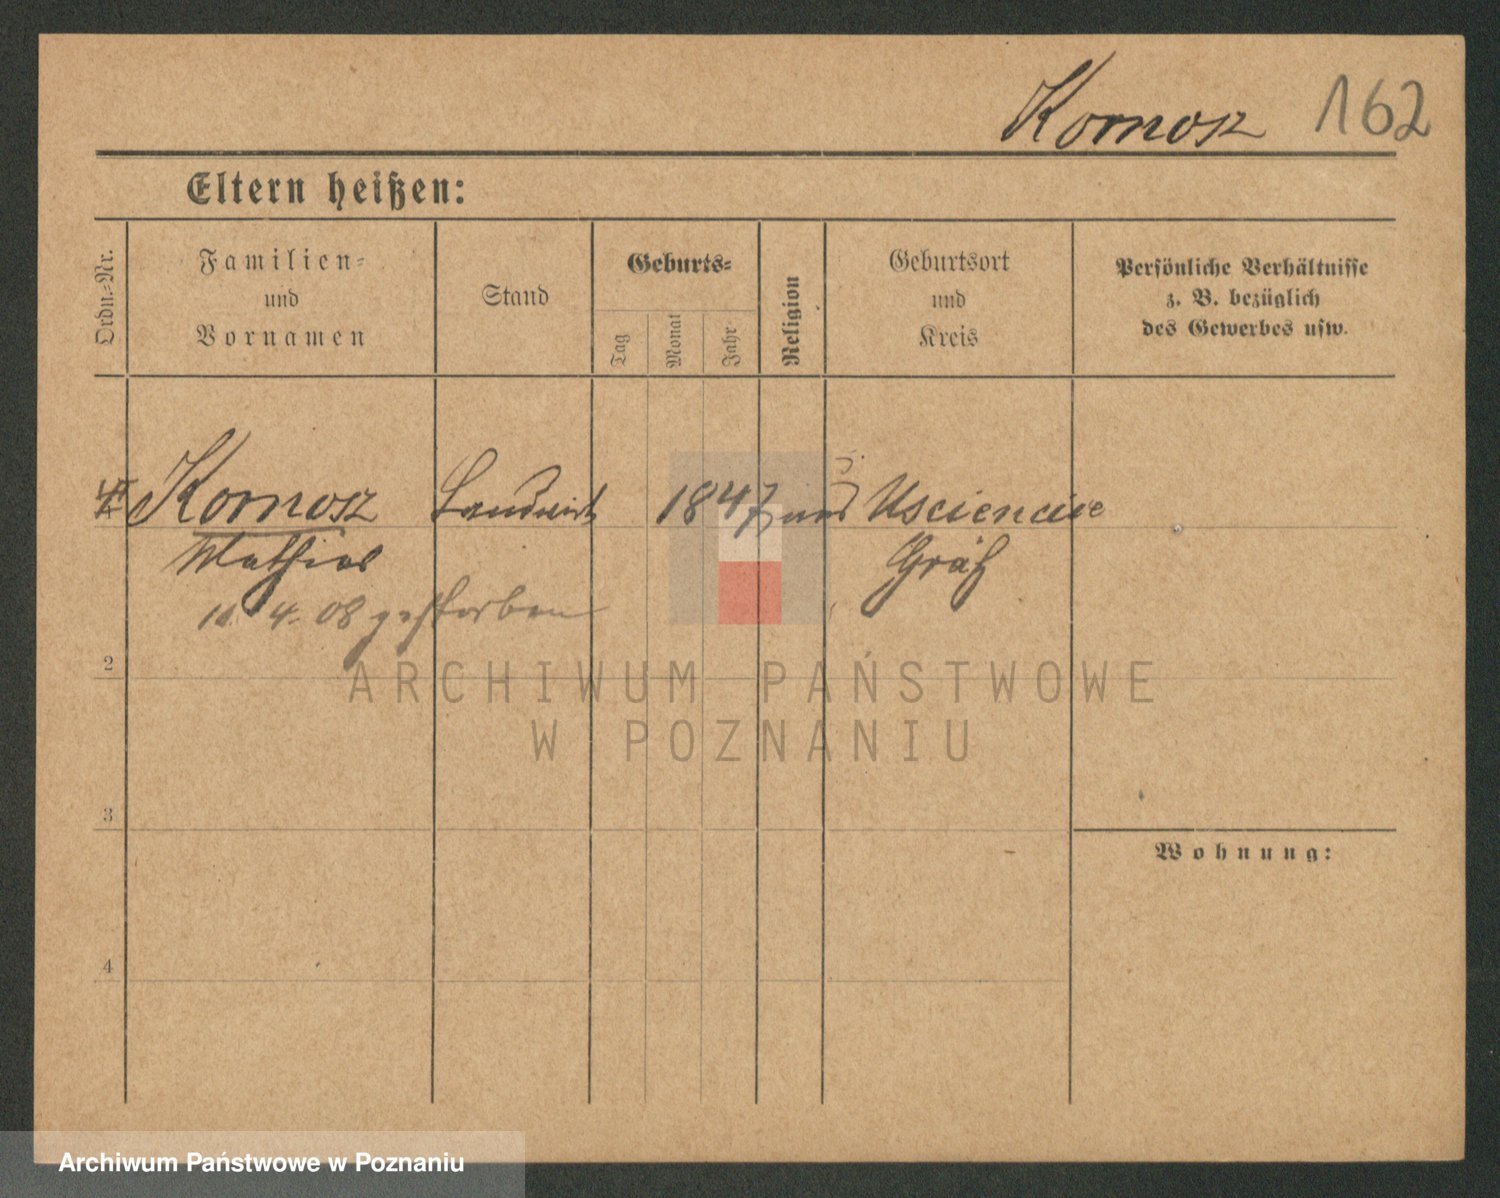 Komosz 162
Eltern heißen:
Ordn.-Nr.
Familien-
und
Vornamen
Stand
Geburts-
Tag
Monat
Jahr
Religion
Geburtsort
und
Kreis
Persönliche Verhältnisse
z. B. bezüglich
des Gewerbes usw.
Komosz Landwirt 1847 Usciencice
Mathias Grätz
4. 08 gestorben
2
ARCHIWUM PAŃSTWOWE
W POZNANIU
3
Wohnung:
4
Archiwum Państwowe w Poznaniu